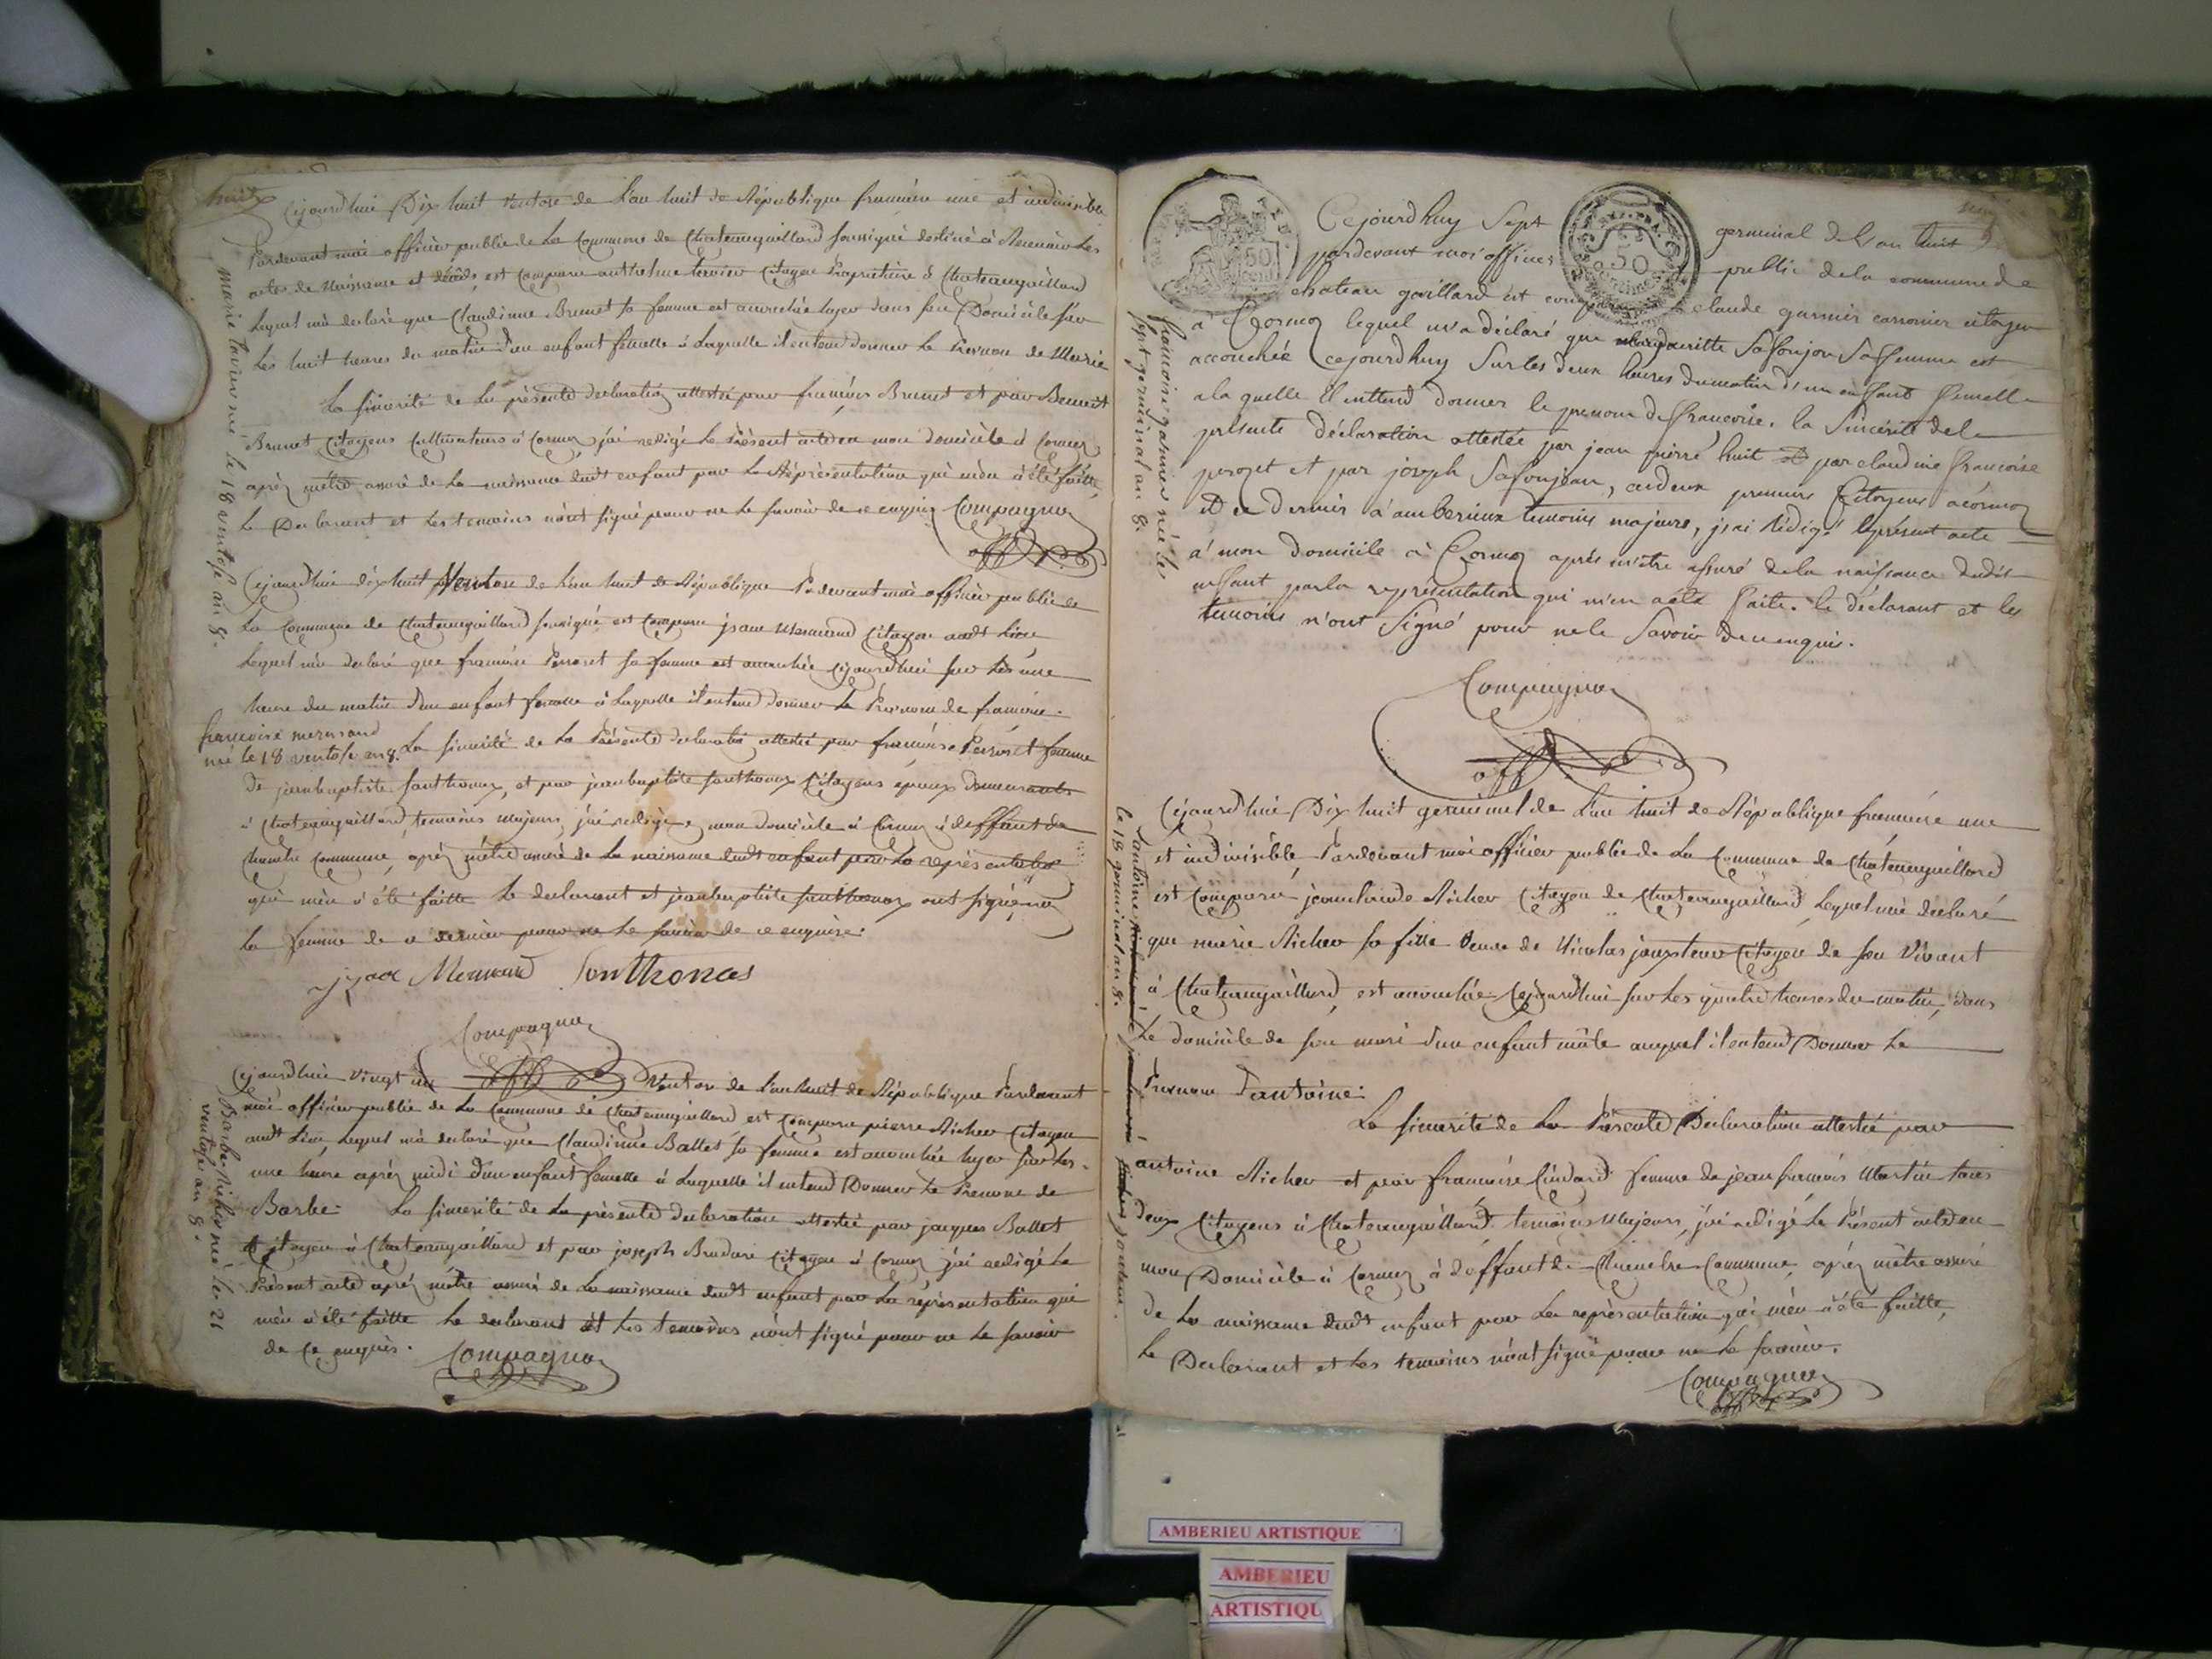 huit
Cejourdhui Dix huit ventose de L'an huit de République francaise une et indivisible
Pardevant moi officier public de La Commune de Chateaugaillard soussigné destiné à Recevoir Les
actes de Naissance et décès, est Comparu citoyen Propriétaire à Chateaugaillard
Lequel m'a declaré que Claudinne Brunet sa femme est accouchée hyer dans son Domicile sur
Les huit heures du matin d'un enfant femelle à Laquelle il entend donner Le Prenom de Marie
La sincerité de La présente declaration attestée par francois Brunet et par Benoit
Brunet Citoyens Cultivateurs à Cormoz, j'ai redigé Le Présent acte en mon domicile à Cormoz
après m'être assuré de La naissance dudt enfant par La Représentation qui m'en à été faitte,
Le Declarant et Les temoins n'ont signé pour ne Le savoir de ce enquis Compagnon
off. p.
marie né le 18 ventose an 8.
Cejourdhui dix huit Ventose de L'an huit de République Pardevant moi officier public de
La Commune de Chateaugaillard soussigné est Comparu jsaac Mermand Citoyen audt Lieu
Lequel m'a declaré que francoise Perroset sa femme est accouchée Cejourdhui sur Les une
heure du matin d'un enfant femelle à Laquelle il entend donner Le Prenom de francoise.
francoise mermand
né le 18 ventose an 8.
La sincerité de La Présente declaration attestée par francoise Perroset femme
de jeanbaptiste Sonthonax, et par jeanbaptiste Sonthonax Citoyens epoux demeurants
à Chateaugaillard, temoins majeurs, j'ai redigé mon domicile à Cormoz à deffaut de
chambre Commune, après m'être assuré de La naissance dudt enfant par La représentation
qui m'en à été faitte Le declarant et jeanbaptiste Sonthonax ont signé, non
La femme de ce dernier pour ne Le savoir de ce enquise.
jsaac Mermand Sonthonas
Compagnon
off. p.
Cejourdhui vingt un Ventose de L'an huit de République Pardevant
moi officier public de La Commune de Chateaugaillard est Comparu pierre Richer Citoyen
audt Lieu, Lequel m'a declaré que Claudinne Ballet sa femme est accouchée hyer sur Les
une heure après midi d'un enfant femelle à Laquelle il entend Donner Le Prenom de
Barbe. La sincerité de La présente declaration attestée par jacques Ballet
Citoyen à Chateaugaillard et par joseph Citoyen à Cormoz j'ai redigé Le
Présent acte après m'être assuré de La naissance dudt enfant par La représentation qui
m'en à été faitte Le declarant et Les temoins n'ont signé pour ne Le savoir
de ce enquis. Compagnon
Barbe Richer né le 21
ventose an 8.
Cejourdhuy Sept germinal de l'an huit
pardevant moi officier public de la commune de
chateau gaillard est comparu claude garnier citoyen
a Cormoz lequel m'a déclaré que margueritte Safonjon Sa femme est
accouchée cejourdhuy Sur les deux heures du matin d'un enffant femelle
a la quelle il entend donner le prenom de francoise. la Sincerité de la
présente déclaration attestée par jean pierre huit et par claudine francoise
perozet et par joseph Safonjeau, ces deux premiers Citoyens a cormoz
et ce dernier a amberieux temoins majeurs, j'ai rédigé le présent acte
a mon domicile à Cormoz après m'etre assuré de la naissance dudit
enffant par la représentation qui m'en a été faite. le déclarant et les
temoins n'ont Signé pour ne le Savoir de ce enquis.
Compagnon
off. p.
francoise garnier né le
sept germinal an 8.
50
Cejourdhui Dix huit germinal de L'an huit de République francaise une
et indivisible, Pardevant moi officier public de La Commune de Chateaugaillard
est Comparu jeanclaude Richer Citoyen de Chateaugaillard Lequel m'a declaré
que marie Richer sa fille veuve de Nicolas Citoyen de son Vivant
à Chateaugaillard, est accouchée Cejourdhui sur Les quatre heures du matin, dans
Le domicile de son mari d'un enfant mâle auquel il entend Donner Le
Prenom d'antoine.
La sincerité de La Présente Declaration attestée par
antoine Richer et par francoise femme de jean francois Martin tous
deux Citoyens à Chateaugaillard temoins Majeurs, j'ai redigé Le Présent acte en
mon Domicile à Cormoz à deffaut de Chambre Commune, après m'être assuré
de La naissance dudt enfant par La représentation qui m'en à été faitte,
Le Declarant et Les temoins n'ont signé pour ne Le savoir.
Compagnon
le 18 germinal an 8.
AMBERIEU ARTISTIQUE
AMBERIEU
ARTISTIQU